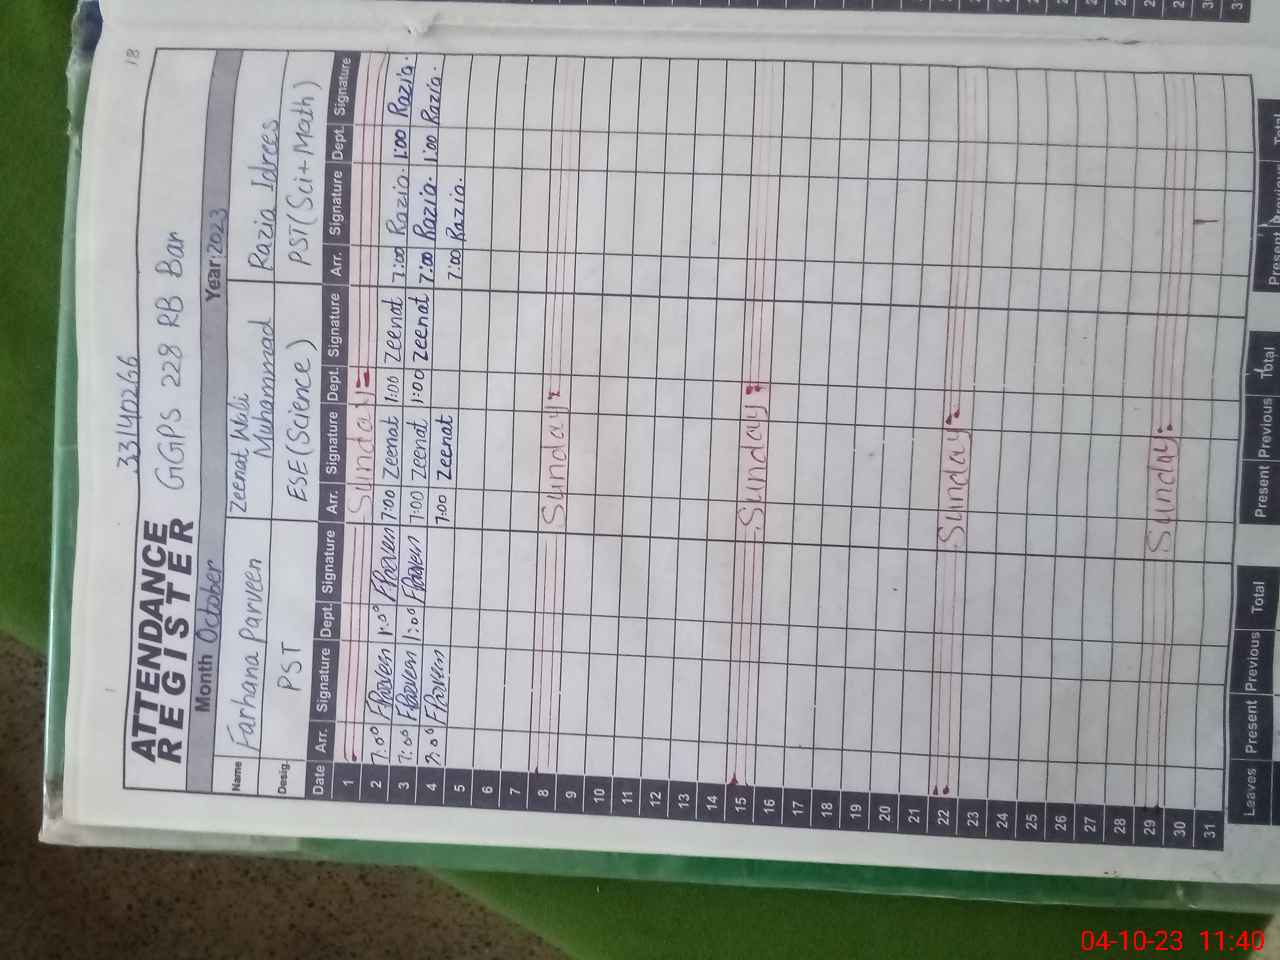 18
33140266
ATTENDANCE REGISTER GGPS 228 RB Bar
Month October Year: 2023
Name Farhana Parveen Zeenat Wali Muhammad Razia Idrees
Desig. PST ESE (Science) PST (Sci + Math)
Date Arr. Signature Dept. Signature Arr. Signature Dept. Signature Arr. Signature Dept. Signature
1 Sunday
2 7:00 FParveen 1:00 FParveen 7:00 Zeenat 1:00 Zeenat 7:00 Razia. 1:00 Razia.
3 7:00 FParveen 1:00 FParveen 7:00 Zeenat 1:00 Zeenat 7:00 Razia. 1:00 Razia.
4 7:00 FParveen 7:00 Zeenat 7:00 Razia.
5
6
7
8 Sunday
9
10
11
12
13
14
15 Sunday
16
17
18
19
20
21
22 Sunday
23
24
25
26
27
28
29 Sunday
30
31
Leaves Present Previous Total Present Previous Total Present Previous Total
04-10-23 11:40